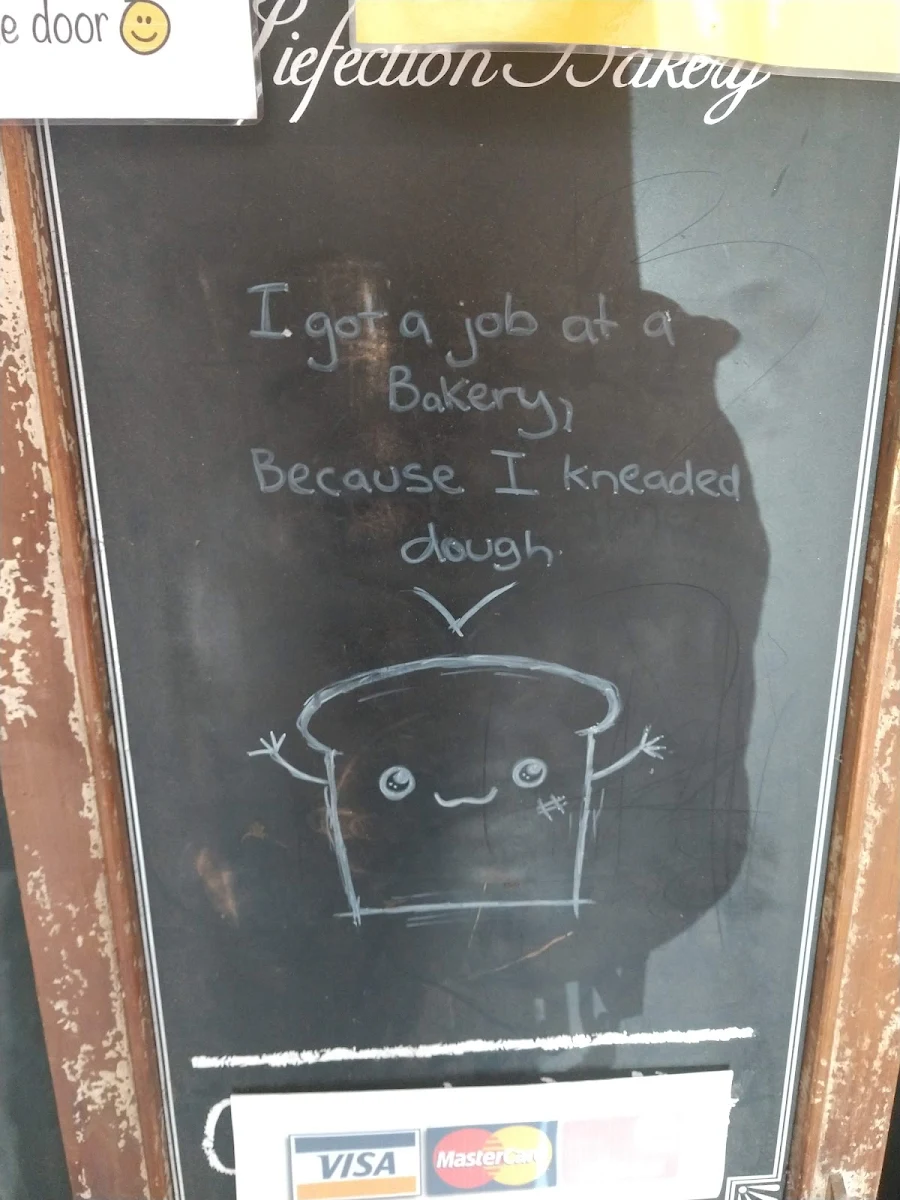 e door
Piefection Bakery
I got a job at a
Bakery,
Because I kneaded
dough.
VISA
MasterCard